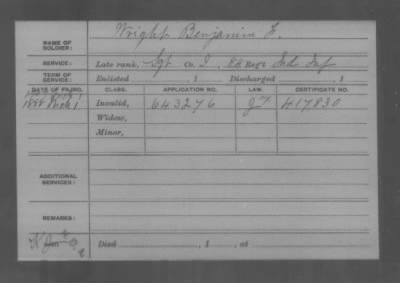 NAME OF SOLDIER: Wright Benjamin F.
SERVICE: Late rank, Sgt Co. I, 88 Reg't Ind Inf
TERM OF SERVICE: Enlisted , 1 Discharged , 1
DATE OF FILING. CLASS. APPLICATION NO. LAW. CERTIFICATE NO.
1888 Invalid, 643276 417830
Widow,
Minor,
ADDITIONAL SERVICES:
REMARKS:
Died , 1 , at